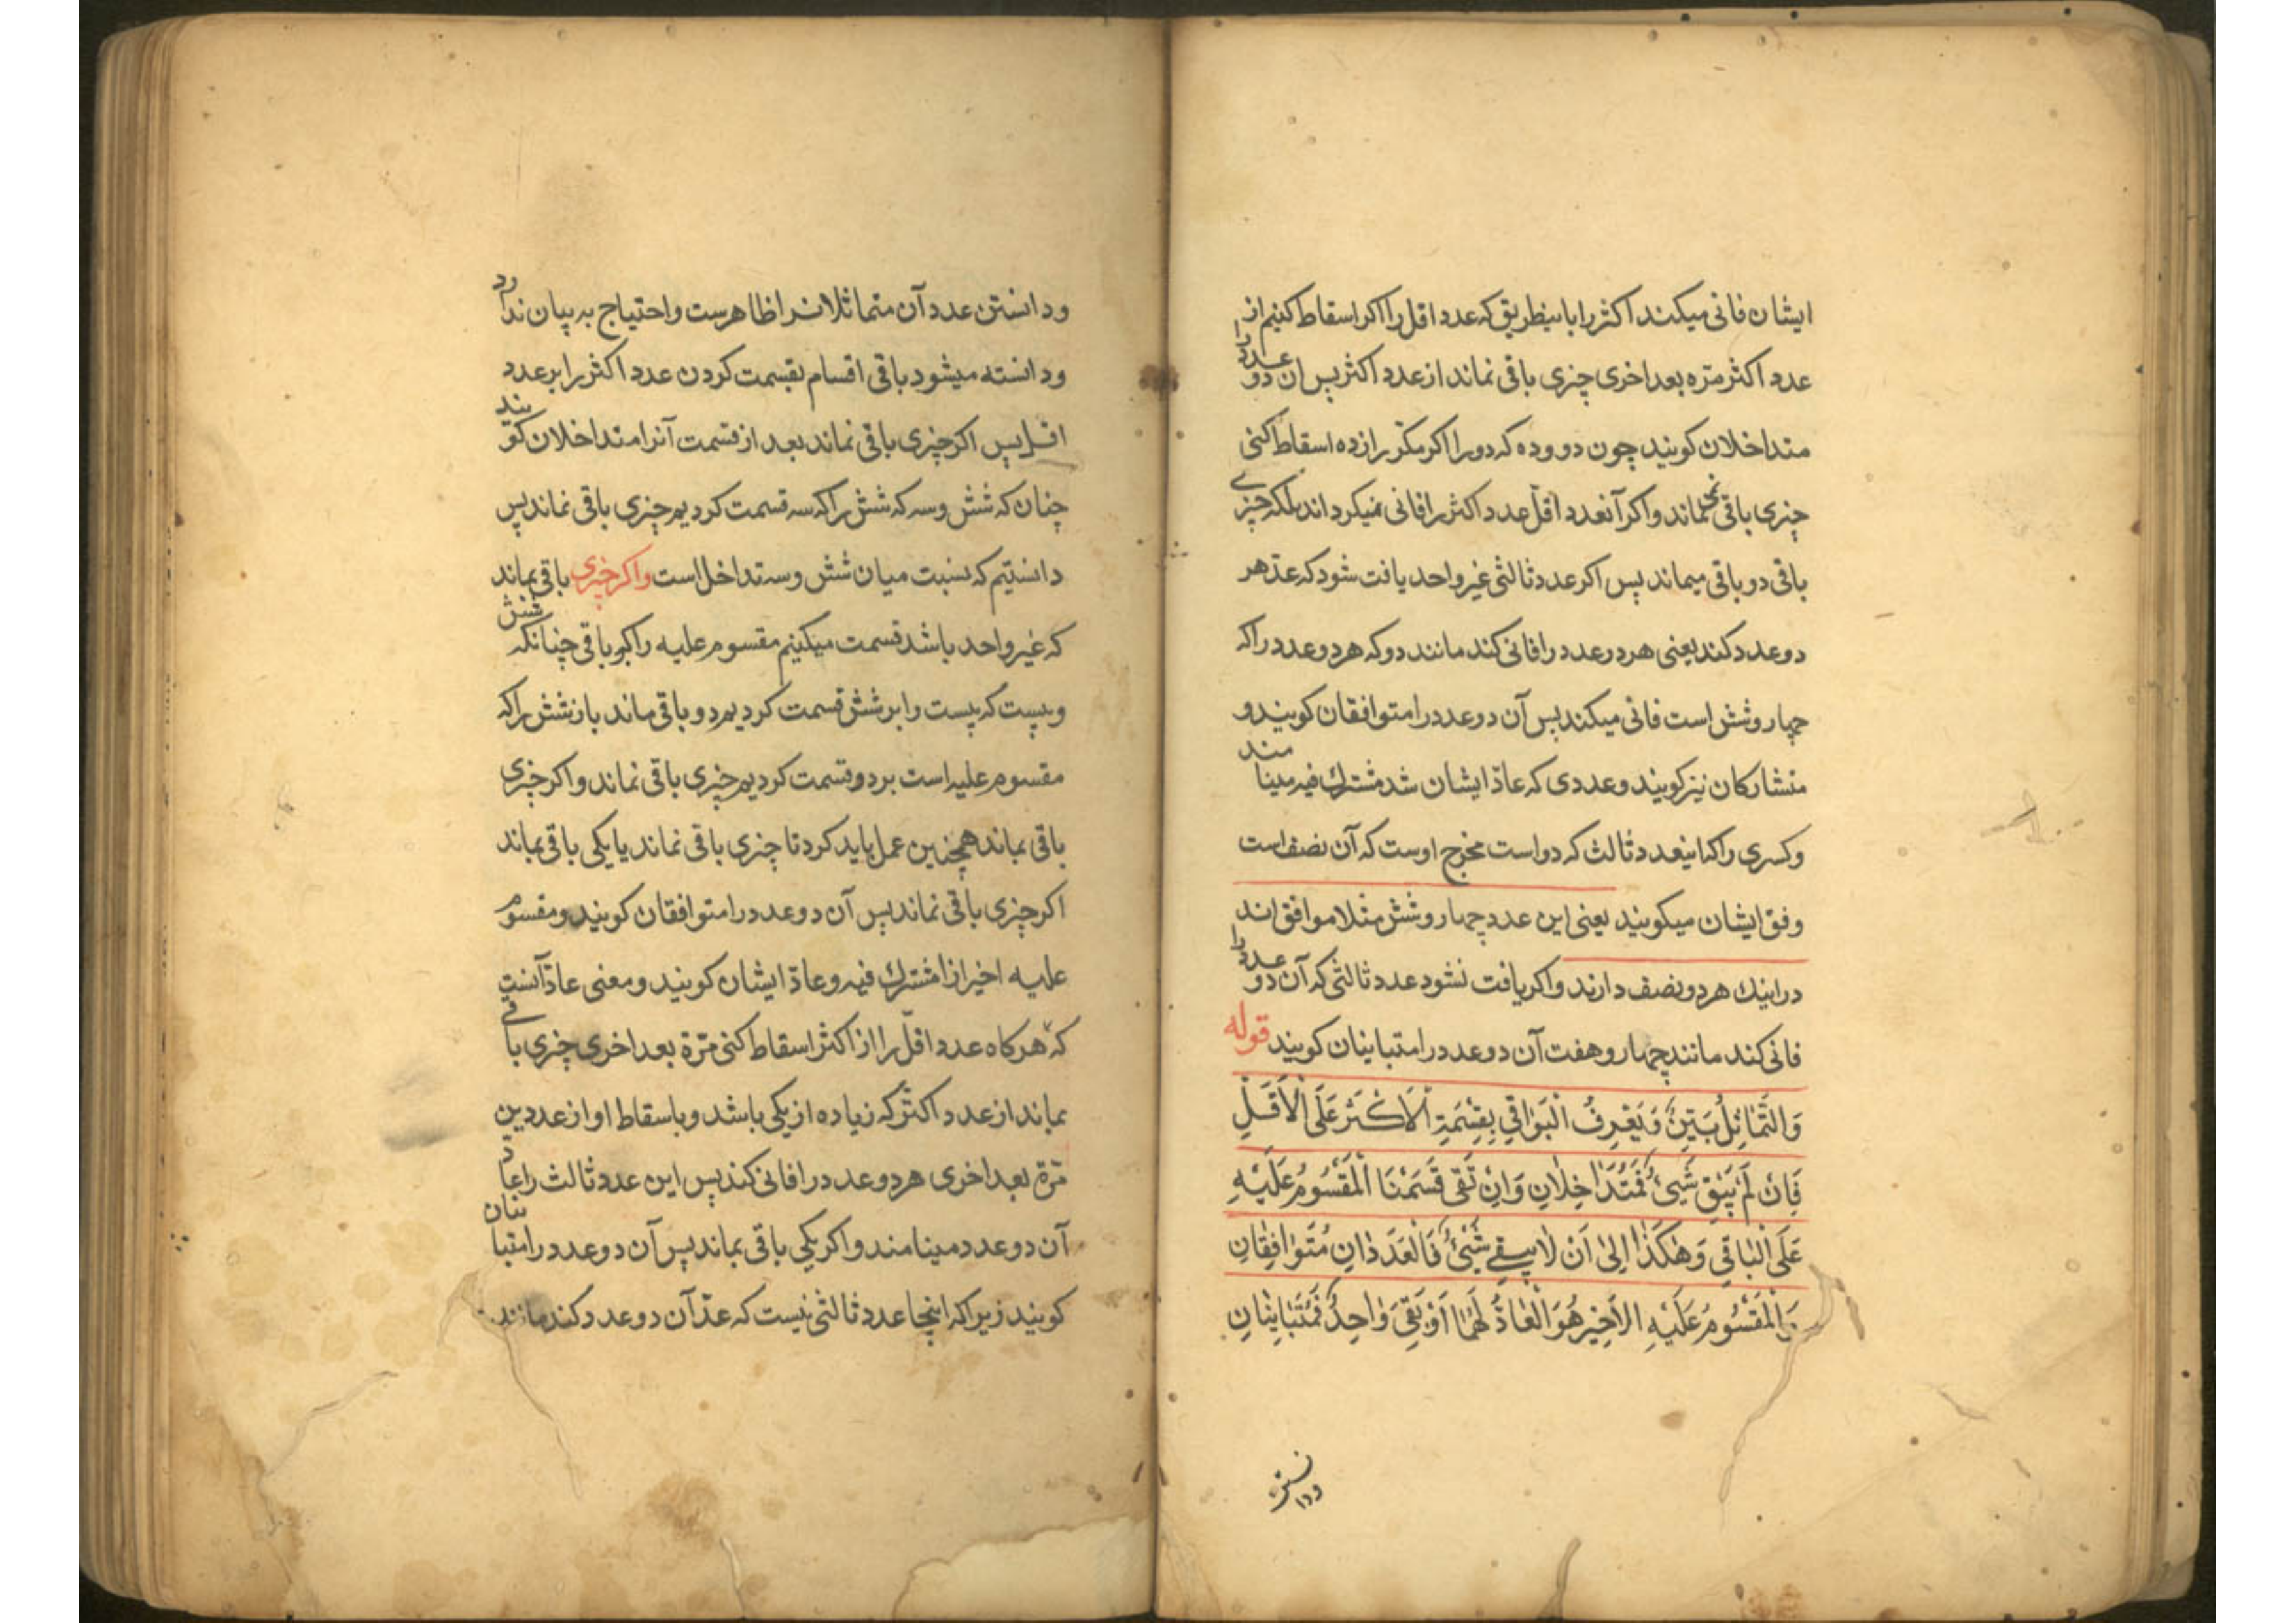 ایشان فانی میکند اکثر را باینطریق که عدد اقل را اکر اسقاط کنیم از
عدد اکثر مرّه بعد اخری چیزی باقی نماند از عدد اکثر پس ان دو عدد را
متداخلان کویند چون دو و ده که دو را اکر مکرّر از ده اسقاط کنی
چیزی باقی نمیماند و اکر آنعدد اقلّ عدد اکثر را فانی نمیکرداند بلکه چیزی
باقی دو باقی میماند پس اکر عدد ثالثی غیر واحد یافت شود که عدّ هر
دو عدد کند یعنی هر در عدد را فانی کند مانند دو که هر دو عدد را که
چهار و شش است فانی میکند پس آن دو عدد را متوافقان کویند و
متشارکان نیز کویند و عددی که عادّ ایشان شد مشترك فیه مینامند
و کسری را که اینعدد ثالث که دو است مخرج اوست که آن نصف است
وفق ایشان میکویند یعنی این عدد چهار و شش مثلا موافق اند
در اینك هر دو نصف دارند و اکر یافت نشود عدد ثالثی که آن دو عدد را
فانی کند مانند چهار و هفت آن دو عدد را متباینان کویند قوله
وَالتَّمٰاثِلُ بَيِّنٌ وَ يُعْرِفُ الْبَوٰاقي بِقِسْمَةِ الْاَكْثَرِ عَلَى الْاَقَلِّ
فَاِنْ لَمْ يَبْقَ شَيْئٌ فَمُتَدٰاخِلٰانِ وَاِنْ بَقِىَ قَسَمْنَا الْمَقْسُومُ عَلَيْهِ
عَلَى الْبٰاقي وَهٰكَذٰا اِلىٰ اَنْ لٰا يبقے شَيْئٌ فَالْعَدَدٰانِ مُتَوٰافِقٰانِ
وَالْمَقْسُومُ عَلَيْهِ الاَخِيْرِ هُوَ الْعٰادُّ لَهُمٰا اَوْ بَقِىَ وٰاحِدٌ فَمُتَبٰايِنٰانِ
ودانستن
ودانستن عدد آن متماثلانرا ظاهرست و احتیاج به بیان ندارد
ودانسته میشود باقی اقسام بقسمت کردن عدد اکثر را بر عدد
اقل پس اکر چیزی باقی نماند بعد از قسمت آنرا متداخلان کویند
چنان که شش و سه که شش را که سه قسمت کردیم چیزی باقی نماند پس
دانستیم که نسبت میان شش و سه تداخل است و اکر چیزی باقی بماند
که غیر واحد باشد قسمت میکینم مقسوم علیه را که بر باقی چنانکه شش
و بیست که بیست را بر شش قسمت کردیم دو باقی ماند باز شش را که
مقسوم علیه است بر دو قسمت کردیم چیزی باقی نماند و اکر چیزی
باقی بماند همچنین عمل باید کرد تا چیزی باقی نماند یا یکی باقی بماند
اکر چیزی باقی نماند پس آن دو عدد را متوافقان کویند و مقسوم
علیه اخیر از امشترك فیه و عادّ ایشان کویند و معنی عادّ آنست
که هر کاه عدد اقلّ را از اکثر اسقاط کنی مرّة بعد اخری چیزی باقی
بماند از عدد اکثر که زیاده از یکی باشد و باسقاط او از عددین
مرّة بعد اخری هر دو عدد را فانی کند پس این عدد ثالث را عادّ
آن دو عدد مینامند و اکر یکی باقی بماند پس آن دو عدد را متباینان
کویند زیرا که اینجا عدد ثالثی نیست که عدّ آن دو عدد کند مانند